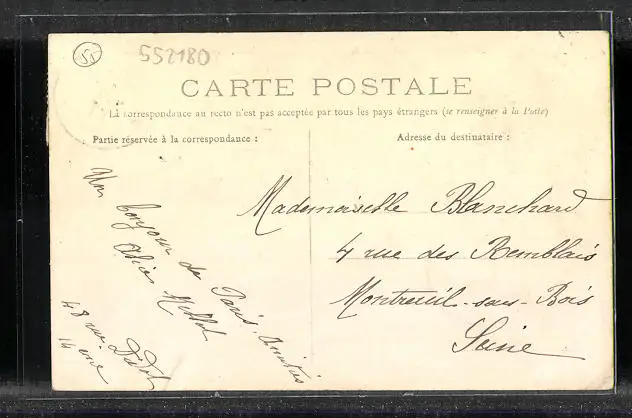 51
552180
CARTE POSTALE
La correspondance au recto n'est pas acceptée par tous les pays étrangers (se renseigner à la Poste)
Partie réservée à la correspondance :
Adresse du destinataire :
Un bonjour de Paris. Amitiés
Alice
48 rue
14 eme
Mademoiselle Blanchard
4 rue des Remblais
Montreuil-sous-Bois
Seine